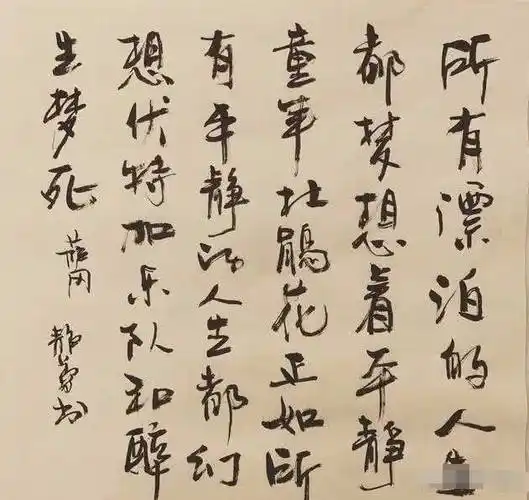 所有漂泊的人生
都梦想着平静
童年杜鹃花正如所
有平静的人生都幻
想伏特加乐队和醉
生梦死
静